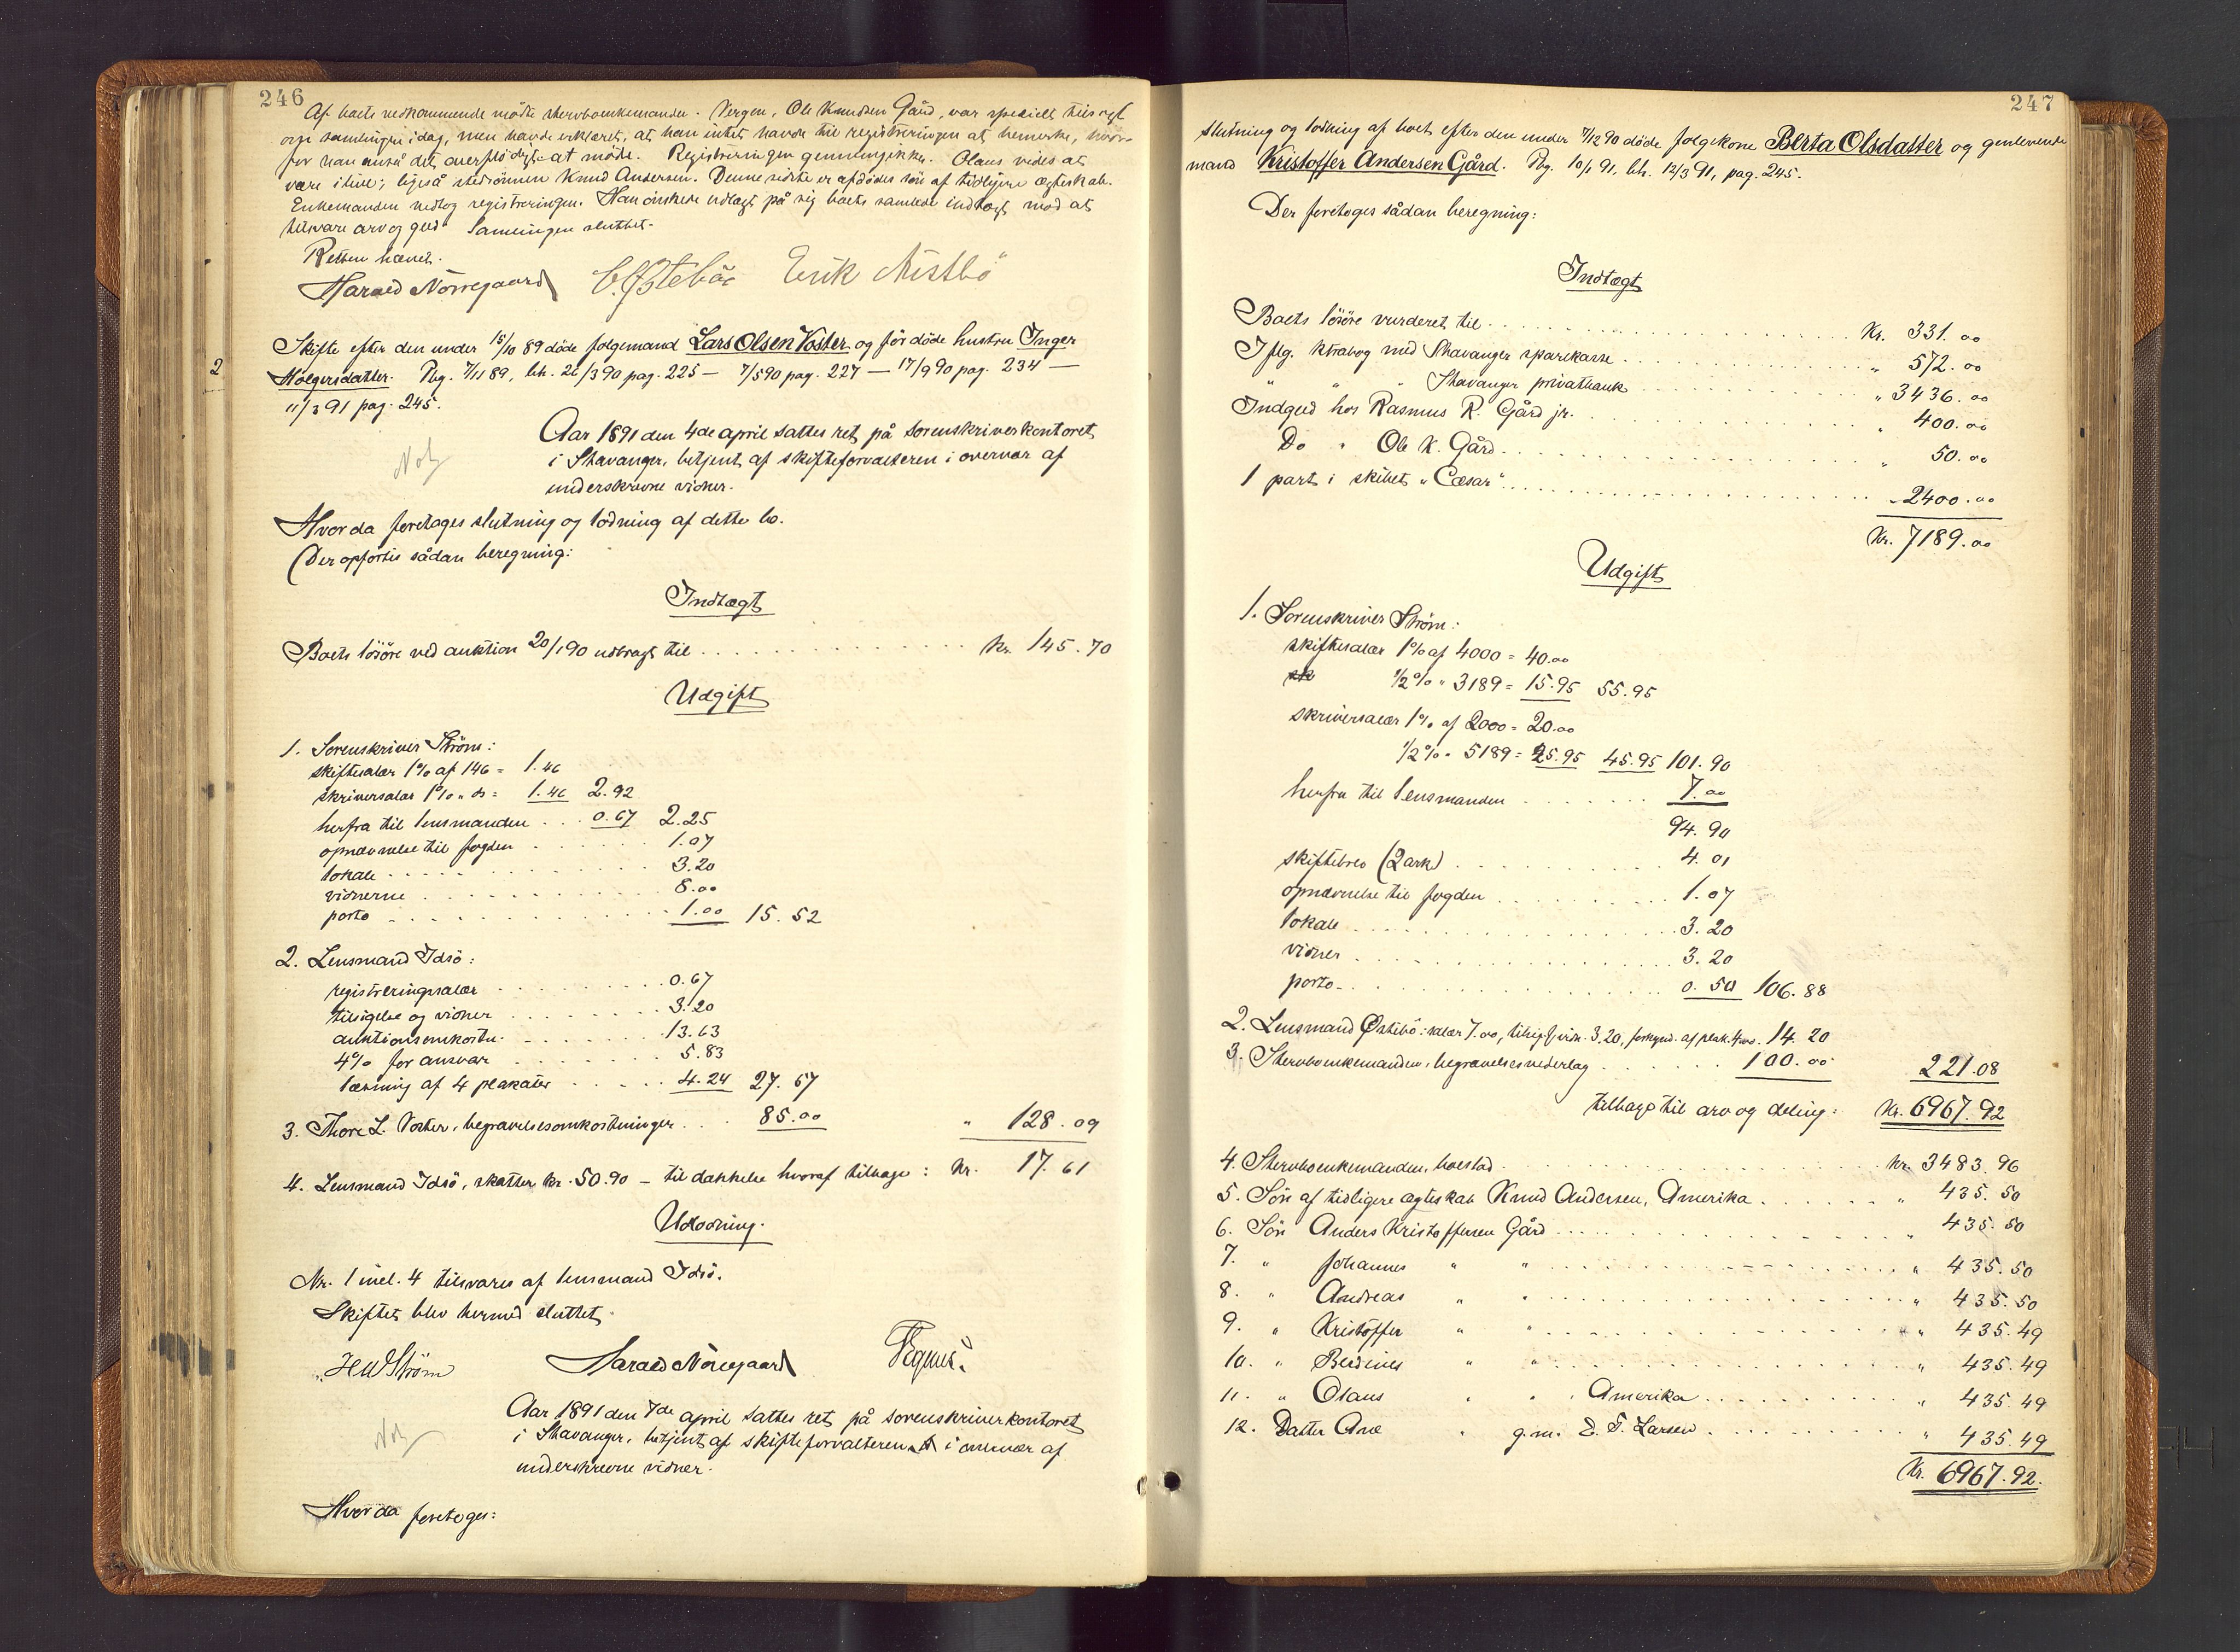 246
Af boets vedkommende mødte sterboenkemanden. Vergen, Ole Knudsen Gård, var specielt tilsagt
om samlingen idag, men havde erklæret, at han intet havde til registreringen at bemerke, hvor-
for han anså det overflödigt at møde. Registreringen gennemgikkes. Olaus vides at
være ilive; ligeså stedsønnen Knud Andersen. Denne sidste er afdødes søn af tidligere ægteskab.
Enkemanden vedtog registreringen. Han ønskede udlagt på sig boets samlede indtægt mod at
tilsvare arv og gjeld. Samlingen sluttet.
Retten hævet.
Harald Nörregaard Erik Mistbö
Skifte efter den under 15/10 89 døde folgemand Lars Olsen Voster og før døde hustru Inger
Holgersdatter. Pbg. 7/11 89, bh. 26/3 90 pag. 225 — 7/5 90 pag. 227 — 17/9 90 pag. 234 —
11/3 91 pag. 245.
2
Aar 1891 den 4de april sattes ret på sorenskriverkontoret
i Stavanger, betjent af skifteforvalteren i overvær af
underskrevne vidner.
Not
Hvorda foretages slutning og lodning af dette bo.
Der opførtes sådan beregning:
Indtægt
Boets løsøre ved auktion 20/1 90 udbragt til . . . Kr. 145.70
Udgift
1. Sorenskriver Strøm:
skiftesalær 1% af 146 = 1.46
skriversalær 1% " do = 1.46 2.92
herfra til lensmanden . . . 0.67 2.25
opnævnelse til fogden . . . 1.07
lokale . . . 3.20
vidnerne . . . 8.00
porto . . . 1.00 15.52
2. Lensmand Idsö:
registreringssalær . . . 0.67
tilsigelse og vidner . . . 3.20
auktionsomkostn. . . . 13.63
4% for ansvar . . . 5.83
læsning af 4 plakater . . . 4.24 27.57
3. Thore L. Voster, begravelsesomkostninger . . . 85.00 " 128.09
4. Lensmand Idsö, skatter kr. 50.90 — til dækkelse hvoraf tilbage: Kr. 17.61
Udlodning.
Nr. 1 incl. 4 tilsvares af lensmand Idsö.
Skiftet blev hermed sluttet.
HW Strøm Harald Nörregaard
Aar 1891 den 7de april sattes ret på sorenskriverkontoret
i Stavanger, betjent af skifteforvalteren i overvær af
underskrevne vidner.
Not
Hvorda foretoges:
247
slutning og lodning af boet efter den under 7/12 90 døde folgekone Berta Olsdatter og genlevende
mand Kristoffer Andersen Gård. Pbg. 10/1 91, bh. 12/3 91, pag. 245.
Der foretoges sådan beregning:
Indtægt
Boets løsøre vurderet til . . . Kr. 331.00
Iflg. ktrabog med Stavanger sparekasse . . . " 572.00
" " " Stavanger privatbank . . . " 3436.00
Indgeld hos Rasmus R. Gård jr. . . . " 400.00
Do " Ole K. Gård . . . " 50.00
1 part i skibet "Cæsar" . . . " 2400.00
Kr. 7189.00
Udgift
1. Sorenskriver Strøm:
skiftesalær 1% af 4000 = 40.00
1/2% " 3189 = 15.95 55.95
skriversalær 1% af 2000 = 20.00
1/2% " 5189 = 25.95 45.95 101.90
herfra til lensmanden . . . 7.00
94.90
skiftebrev (2 ark) . . . 4.01
opnævnelse til fogden . . . 1.07
lokale . . . 3.20
vidner . . . 3.20
porto . . . 0.50 106.88
2. Lensmand Østebö: salær 7.00, tilsig. & vidn. 3.20, forkynd. af plak. 4.00. 14.20
3. Stervboenkemanden, begravelsesvederlag . . . 100.00 221.08
tilbage til arv og deling: Kr. 6967.92
4. Stervboenkemanden, boeslod . . . Kr. 3483.96
5. Søn af tidligere ægteskab Knud Andersen, Amerika . . . " 435.50
6. Søn Anders Kristoffersen Gård . . . " 435.50
7. " Johannes " " . . . " 435.50
8. " Andreas " " . . . " 435.50
9. " Kristoffer " " . . . " 435.49
10. " Berdines " " . . . " 435.49
11. " Olaus " " , Amerika . . . " 435.49
12. Datter Ane " g.m. E. T. Larsen . . . " 435.49
Kr. 6967.92.